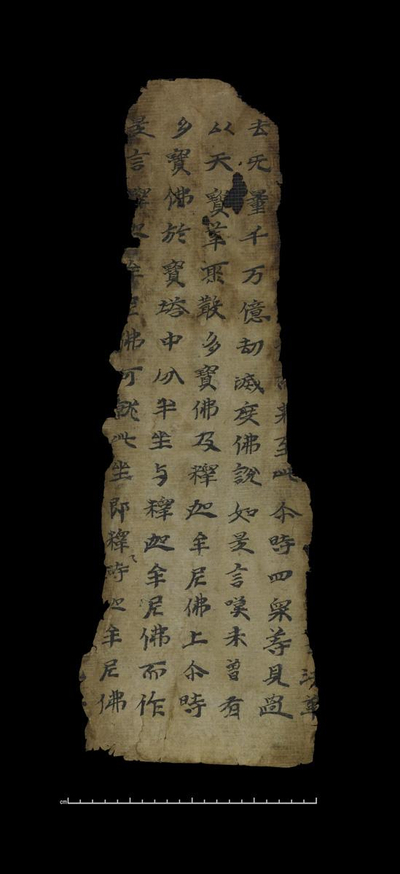 華
來至此尒時四衆等見過
去无量千万億劫滅度佛說如是言嘆未曾有
以天寶華聚散多寶佛及釋迦牟尼佛上尒時
多寶佛於寶塔中分半坐与釋迦牟尼佛而作
是言釋迦牟尼佛可就此坐即釋時迦牟尼佛
cm